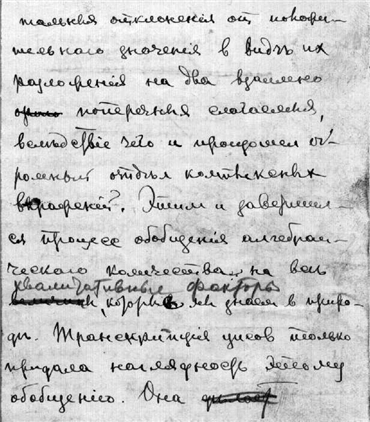 тальныя отклоненія от
тельнаго значенія в видѣ их
разложенія на два взаимно
поперечныя слагаемыя,
вслѣдствіе чего и произошел ог-
ромный отдѣл комплексных
выражений. Этим и завершил-
ся процесс обобщенія алгебраи-
ческаго количества на все
квалитативные факторы
которые мы знаем в приро-
дѣ. Транскрипція усов только
придала наглядность этому
обобщенію. Она